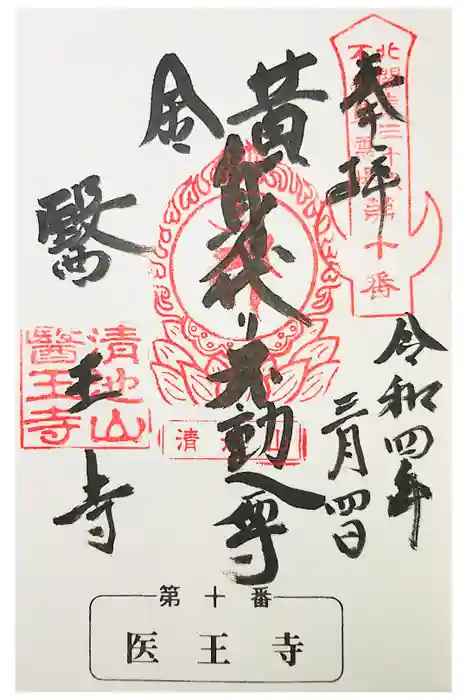 奉拝
北関東三十六
不動尊霊場
第十番
令和四年
三月四日
黄金
身代り不動尊
清地山
醫王寺
清地山
醫王寺
第十番
医王寺